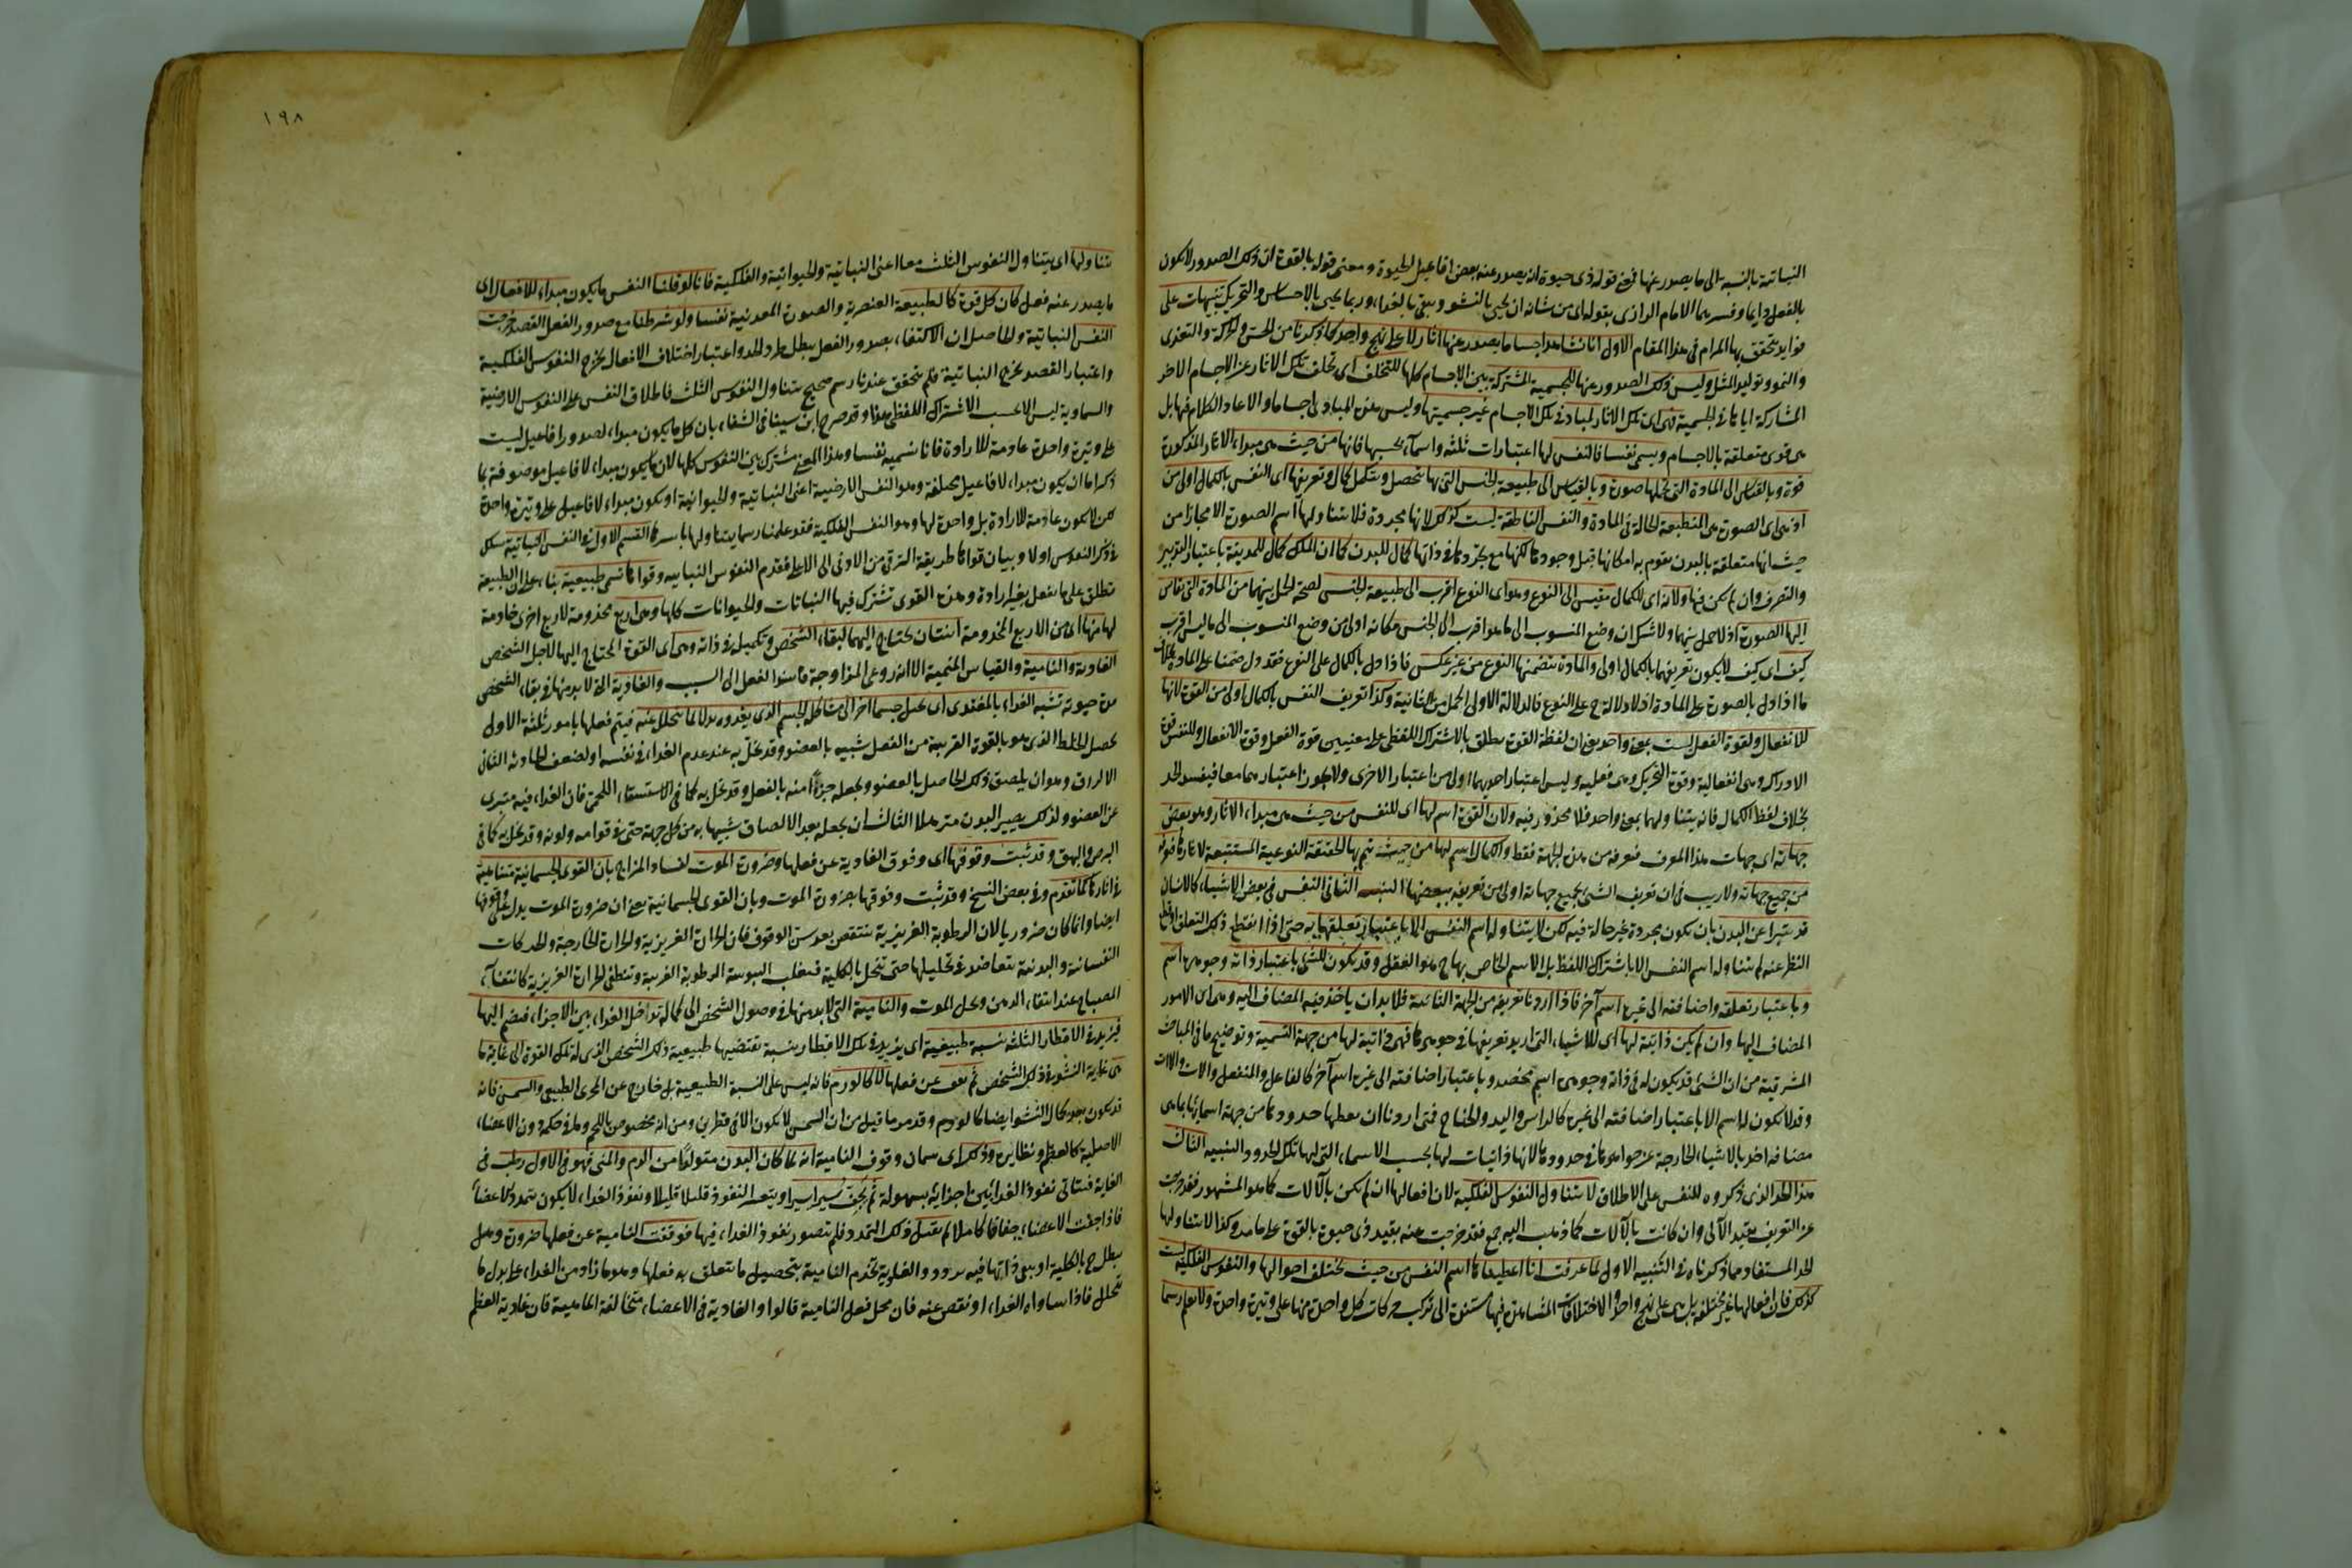 النباتية بالنسبة الى ما يصدر عنها فمعنى قوله ذى حيوة ان يصدر عنه بعض افاعيل الحيوة ومعنى قوله بالقوة ان ذلك الصدور لا يكون
بالفعل دايما وفسرهما الامام الرازى بقوله اى من شانه ان يحيى بالنشو ويبقى بالغذاء وربما يحيى بالاحساس والتحريك تنبيهات على
فوايد يتحقق بها المرام فى هذا المقام الاول انا نشاهد اجساما يصدر عنها اثار لا على نهج واحد كما ذكرنا من الحس والحركة والتغذى
والنمو وتوليد المثل وليس ذلك الصدور عنها للجسمية المشتركة بين الاجسام كلها للتخلف اى تخلف تلك الاثار عن الاجسام الاخر
المشاركة اياها فى الجسمية فهى اى تلك الاثار لمباد فى تلك الاجسام غير جسميتها وليس هذه المبادى اجساما والا عاد الكلام فيها بل
هى قوى متعلقة بالاجسام ويسمى نفسا فالنفس لها اعتبارات ثلثة واسماء بحسبها فانها من حيث هى مبداء الاثار المذكورة
قوة وبالقياس الى المادة التى تحلها صورة وبالقياس الى طبيعة الجنس التى بها تتحصل وتتكمل كمال وتعريفها اى النفس بالكمال اولى من
اذ هى اى الصورة هى المنطبعة الحالة فى المادة والنفس الناطقة ليست كذلك لانها مجردة فلا يتناولها اسم الصورة الا مجازا من
حيث انها متعلقة بالبدن يقوم به امكانها قبل وجودها لكنها مع تجردها فى ذاتها كمال للبدن كما ان الملك كمال للمدينة باعتبار التدبير
والتصرف وان لم يكن فيها ولانه اى الكمال مقيس الى النوع وهو اى النوع اقرب الى طبيعة الجنس لصحة الحمل بينهما من المادة التى تقاس
اليها الصورة اذ لا حمل بينهما ولا شك ان وضع المنسوب الى ما هو اقرب الى الجنس مكانه اولى من وضع المنسوب الى ما ليس اقرب
كيف اى كيف لا يكون تعريفها بالكمال اولى والمادة يتضمنها النوع من غير عكس فاذا دل بالكمال على النوع فقد دل ضمنا على المادة بخلاف
ما اذا دل بالصورة على المادة اذ لا دلالة ح على النوع فالدلالة الاولى اكمل من الثانية وكذا تعريف النفس بالكمال اولى من القوة لانها
للانفعال ولقوة الفعل ليست بمعنى واحد يعنى ان لفظة القوة يطلق بالاشتراك اللفظى على معنيين قوة الفعل وقوة الانفعال وللنفس قوة
الادراك وهى انفعالية وقوة التحريك وهى فعلية وليس اعتبار احديهما اولى من اعتبار الاخرى ولا يجوز اعتبارهما معا فيفسد الحد
بخلاف لفظ الكمال فانه يتناولهما بمعنى واحد فلا محذور فيه ولان القوة اسم لها اى للنفس من حيث هى مبداء الاثار وهو بعض
جهاته اى جهات هذا المعرف فتعرفه من هذه الجهة فقط والكمال اسم لها من حيث يتم بها الحقيقة النوعية المستتبعة لاثارها فتعرفه
من جميع جهاته ولا ريب فى ان تعريف الشئ بجميع جهاته اولى من تعريفه ببعضها التنبيه الثانى النفس فى بعض الاشياء كالانسان
قد تتبرا عن البدن بان تكون مجردة غير حالة فيه لكن لا يتناوله اسم النفس الا باعتبار تعلقها به حتى اذا انقطع ذلك التعلق او قطع
النظر عنه لم يتناوله اسم النفس الا باشتراك اللفظ بل الاسم الخاص بها ح هو العقل وقد يكون للشئ باعتبار ذاته وجوهره اسم
وباعتبار تعلقه واضافته الى غيره اسم آخر فاذا اردنا تعريفه من الجهة الثانية فلا بد ان ياخذ فيه المضاف اليه وهذه الامور
المضاف اليها وان لم يكن ذاتية لها اى للاشياء التى اريد تعريفها فى جوهرها فهى ذاتية لها من جهة التسمية وتوضيح ما فى المباحث
المشرقية من ان الشئ قد يكون له فى ذاته وجوهره اسم يخصه وباعتبار اضافته الى غيره اسم آخر كالفاعل والمنفعل والاب والابن
وقد لا يكون له اسم الا باعتبار اضافته الى غيره كالراس واليد والجناح فمتى اردنا ان نعطيها حدودها من جهة اسمائها بما هى
مضافة اخذنا الاشياء الخارجة عن جواهرها فى حدودها لانها ذاتيات لها بحسب الاسماء التى لها تلك الحدود التنبيه الثالث
هذا الحد الذى ذكروه للنفس على الاطلاق لا يتناول النفوس الفلكية لان افعالها ان لم يكن بالآلات كما هو المشهور فقد خرجت
عن التعريف بقيد الآلى وان كانت بالآلات كما ذهب اليه جمع فقد خرجت عنه بقيد ذى حيوة بالقوة على ما مر وكذا لا يتناولها
الحد المستفاد مما ذكرناه فى التنبيه الاول لما عرفت انا اعطيناها اسم النفس من حيث تختلف احوالها والنفوس الفلكية ليست
كذلك فان افعالها غير مختلفة بل هى على نهج واحد والاختلافات المشاهدة فيها مستندة الى تركب حركات كل واحدة منها على وتيرة واحدة ولا نعلم رسما
١٩٨
يتناولها اى يتناول النفوس الثلث معا اعنى النباتية والحيوانية والفلكية فانا لو قلنا النفس ما يكون مبداء للافعال اى
ما يصدر عنه فعل كان كل قوة كالطبيعة العنصرية والصورة المعدنية نفسا ولو شرطنا مع صدور الفعل القصد خرجت
النفس النباتية والحاصل ان الاكتفاء بصدور الفعل يبطل طرد الحد واعتبار اختلاف الافعال يخرج النفوس الفلكية
واعتبار القصد يخرج النباتية فلم يتحقق عندنا رسم صحيح يتناول النفوس الثلث فاطلاق النفس على النفوس الارضية
والسماوية ليس الا بحسب الاشتراك اللفظى هذا وقد صرح ابن سينا فى الشفاء بان كل ما يكون مبداء لصدور افاعيل ليست
على وتيرة واحدة عادمة للارادة فانا نسميه نفسا وهذا المعنى مشترك بين النفوس كلها لان ما يكون مبداء لافاعيل موصوفة بما
ذكر اما ان يكون مبداء لافاعيل مختلفة وهو النفس الارضية اعنى النباتية والحيوانية او يكون مبداء لافاعيل على وتيرة واحدة
لكن لا يكون عادمة للارادة بل واحدة لها وهو النفس الفلكية فقد علمنا رسما يتناولها باسرها القسم الاول فى النفس النباتية سلك
فى ذكر النفوس اولا وبيان قواها طريقة الترقى من الادنى الى الاعلى فقدم النفوس النباتية وقواها تسمى طبيعية بناء على ان الطبيعة
تطلق على ما يفعل بغير ارادة وهذه القوى تشترك فيها النباتات والحيوانات كلها وهى اربع مخدومة لاربع اخرى خادمة
لها منها اى من الاربع المخدومة اثنتان يحتاج اليهما لبقاء الشخص وتكميله فى ذاته وهى اى القوة المحتاج اليها لاجل الشخص
الغاذية والنامية والقياس المنمية الا انه روعى المزاوجة فاسند الفعل الى السبب والغاذية التى لا بد منها فى بقاء الشخص
مدة حيوته تشبه الغذاء بالمغتذى اى تحيل جسما آخر الى مشاكلة الجسم الذى يغذوه بدلا لما يتحلل عنه فيتم فعلها بامور ثلثة الاول
تحصيل الخلط الذى هو بالقوة القريبة من الفعل شبيه بالعضو وقد تخل به عند عدم الغذاء فى نفسه او لضعف الجاذبة الثانى
الالزاق وهو ان يلصق ذلك الحاصل بالعضو ويجعله جزءا منه بالفعل وقد تخل به كما فى الاستسقاء اللحمى فان الغذاء فيه متبرى
عن العضو ولذلك يصير البدن مترهلا الثالث ان يجعله بعد الالصاق شبيها به من كل جهة حتى فى قوامه ولونه وقد تخل به كما فى
البرص والبهق وقد ثبت وقوفها اى وقوف الغاذية عن فعلها وضرورة الموت لفساد المزاج بان القوى الجسمانية متناهية
فى اثارها كما تقدم وفى بعض النسخ وقد ثبت وقوفها بضرورة الموت وبان القوى الجسمانية يعنى ان ضرورة الموت يدل على وقوفها
ايضا وانما كان ضروريا لان الرطوبة الغريزية تنتقص بعد سن الوقوف فان الحرارة الغريزية والحرارة الخارجة والحركات
النفسانية والبدنية تتعاضد فى تحليلها حتى تنحل بالكلية فتغلب اليبوسة الرطوبة الغريبة وتنطفى الحرارة الغريزية كانتفاء
المصباح عند انتفاء الدهن ويحل الموت والنامية التى لا بد منها فى وصول الشخص الى كماله تداخل الغذاء بين الاجزاء فيضم اليها
فيزيد فى الاقطار الثلثة بنسبة طبيعية اى يزيد فى تلك الاقطار بنسبة تقتضيها طبيعية ذلك الشخص الذى له تلك القوة الى غاية ما
هى غاية النشو فى ذلك الشخص ثم تقف عن فعلها لا كالورم فانه ليس على النسبة الطبيعية بل خارج عن المجرى الطبيعى والسمن فانه
قد يكون بعد كمال النشو ايضا كالورم وقد مر ما قيل من ان السمن لا يكون الا فى قطرين ومن انه مخصوص باللحم وما فى حكمه دون الاعضاء
الاصلية كالعظم ونظايره وذلك اى سمان وقوف النامية انه لما كان البدن متولدا من الدم والمنى فهو فى الاول رطب فى
الغاية فيتاتى نفوذ الغذاء بين اجزائه بسهولة ثم يجف يسيرا يسيرا ويتعسر النفوذ قليلا قليلا ونفوذ الغذاء لا يكون بتمدد الاعضاء
فاذا جفت الاعضاء جفافا كاملا لم يقبل ذلك التمدد فلم يتصور نفوذ الغذاء فيها فوقفت النامية عن فعلها ضرورة وهل
يبطل ح بالكلية او يبقى ذاتها فيه تردد والغاذية تخدم النامية بتحصيل ما يتعلق به فعلها وهو ما زاد من الغذاء على بدل ما
تحلل فاذا ساواه الغذاء او نقص عنه فان محل فعل النامية قالوا والغاذية فى الاعضاء متخالفة الماهية فان غاذية العظم